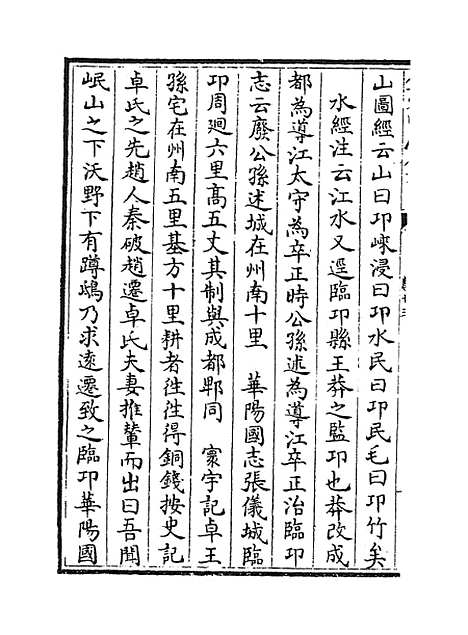 山圖經云山曰邛崍浸曰邛水民曰邛民毛曰邛竹矣
水經注云江水又逕臨邛縣王莽之監邛也莽改成
都為導江太守為卒正時公孫述為導江卒正治臨邛
志云廢公孫述城在州南十里 華陽國志張儀城臨
邛周廻六里高五丈其制與成都郫同 寰宇記卓王
孫宅在州南五里基方十里耕者徃徃得銅錢按史記
卓氏之先趙人秦破趙遷卓氏夫妻推輦而出曰吾聞
岷山之下沃野下有蹲鴟乃求遠遷致之臨邛華陽國